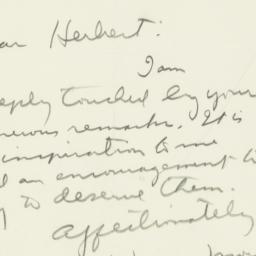 ar Herbert:
I am
eeply touched by your
nerous remarks. It is
inspiration to me
d an encouragement to
y to deserve them.
Affectionately